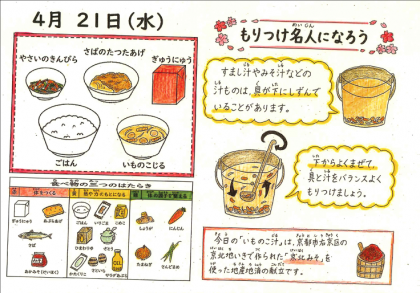 4月 21日(水)
さばのたつたあげ
やさいのきんぴら
ぎゅうにゅう
ごはん
いものこじる
食べ物の三つのはたらき
ぎゅうにゅう
あぶらあげ
さば
あかみそ
ごはん
いりごま
こめこ
さといも
さとう
しょうが
にんじん
たまねぎ
さんどまめ
もりつけ名人になろう
めいじん
すまし汁やみそ汁などの
汁ものは、具が下にしずんで
いることがあります。
下からよくまぜて、
具と汁をバランスよく
もりつけましょう。
今日の「いものこ汁」は、京都市右京区の
京北地いきで作られた「京北みそ」を
使った地産地消の献立です。